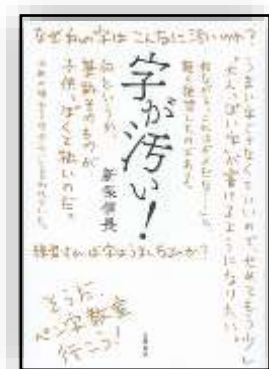 なぜ私の字はこんなに汚いのか?
うまい字じゃなくていいので、せめてもう少し
“大人っぽい字”が書けるようになりたい。
軽く絶望したのである。
字が汚い!
新保信長
何というか、
筆跡そのものが
子供っぽくて拙いのだ。
練習すれば字はうまくなるのか?
そうだ、
ペン字教室
行こう!
文藝春秋